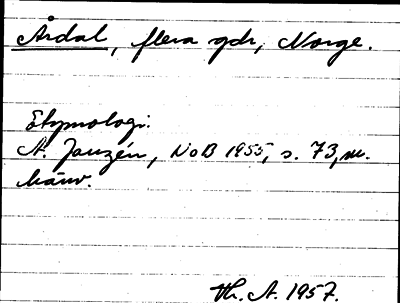 Årdal, flera gdr, Norge.
Etymologi:
A. Janzén, NoB 1955, s. 73, m.
hänv.
Th. A. 1957.